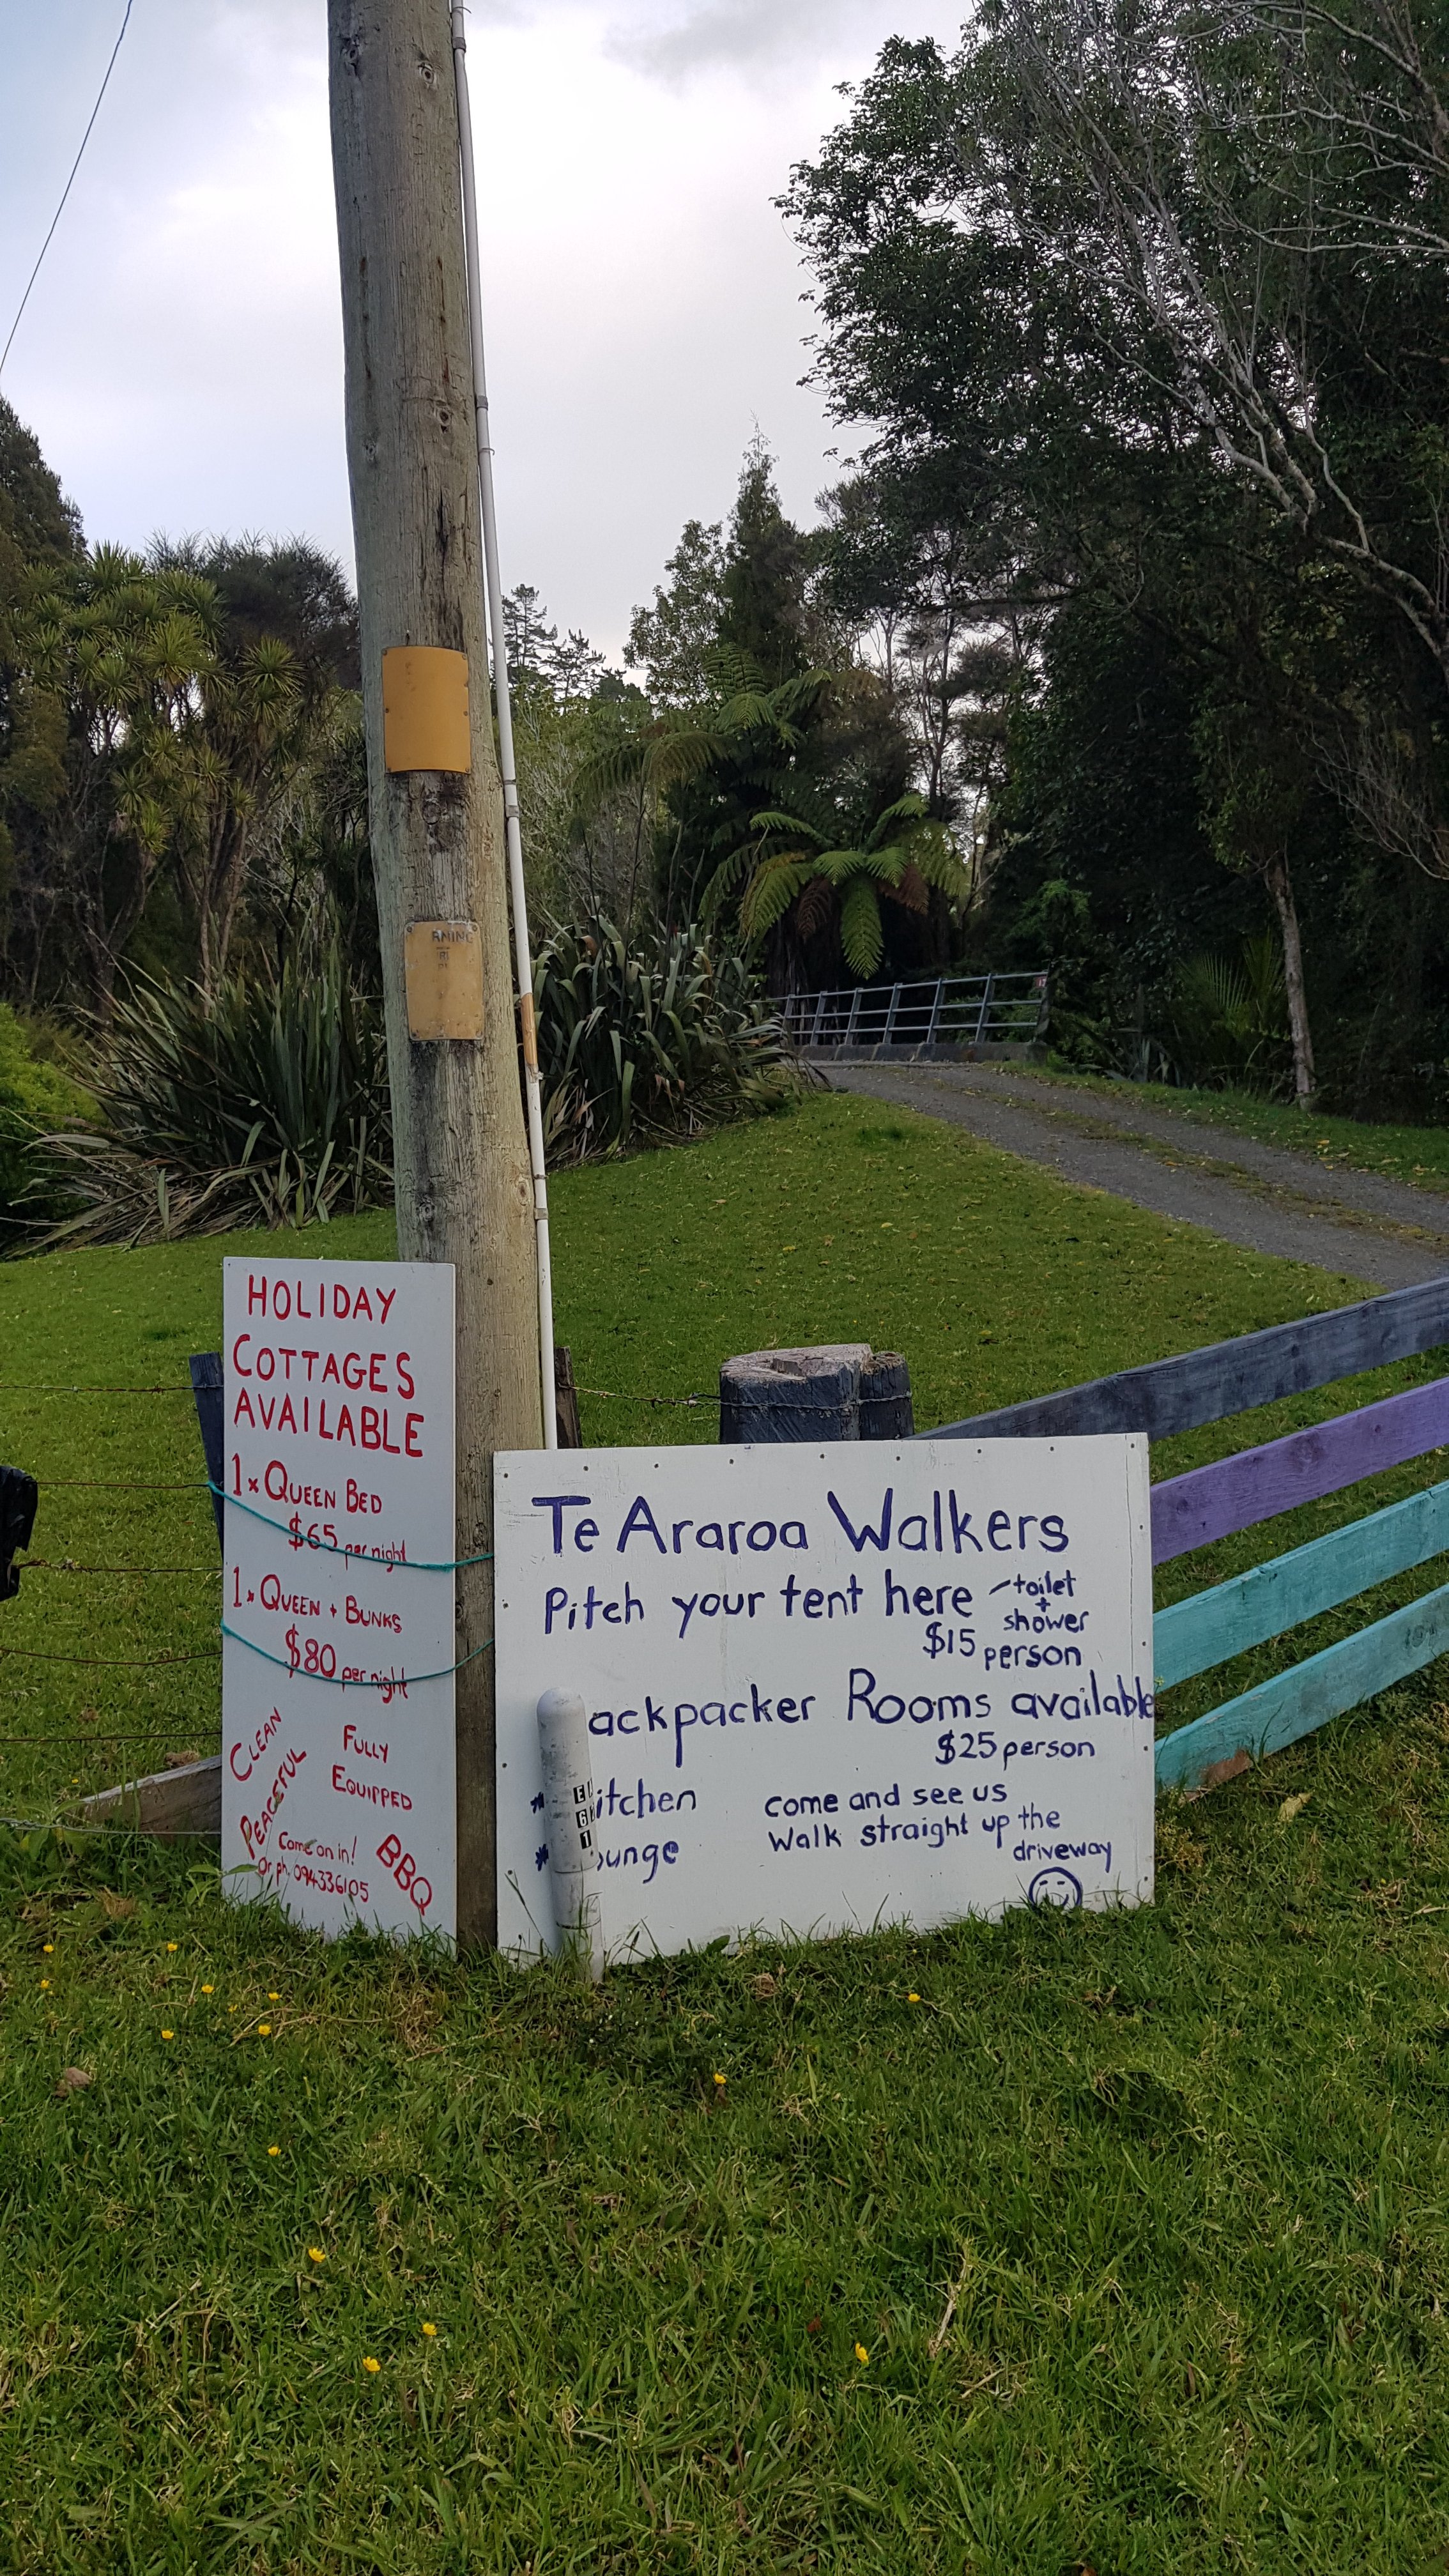 ARNING
HOLIDAY
COTTAGES
AVAILABLE
1 x QUEEN BED
$65 per night
1 x QUEEN + BUNKS
$80 per night
CLEAN
PEACEFUL
FULLY
EQUIPPED
Come on in!
Or ph. 094336105
BBQ
Te Araroa Walkers
Pitch your tent here - toilet
+
shower
$15 person
ackpacker Rooms available
$25 person
itchen
ounge
come and see us
Walk straight up the
driveway